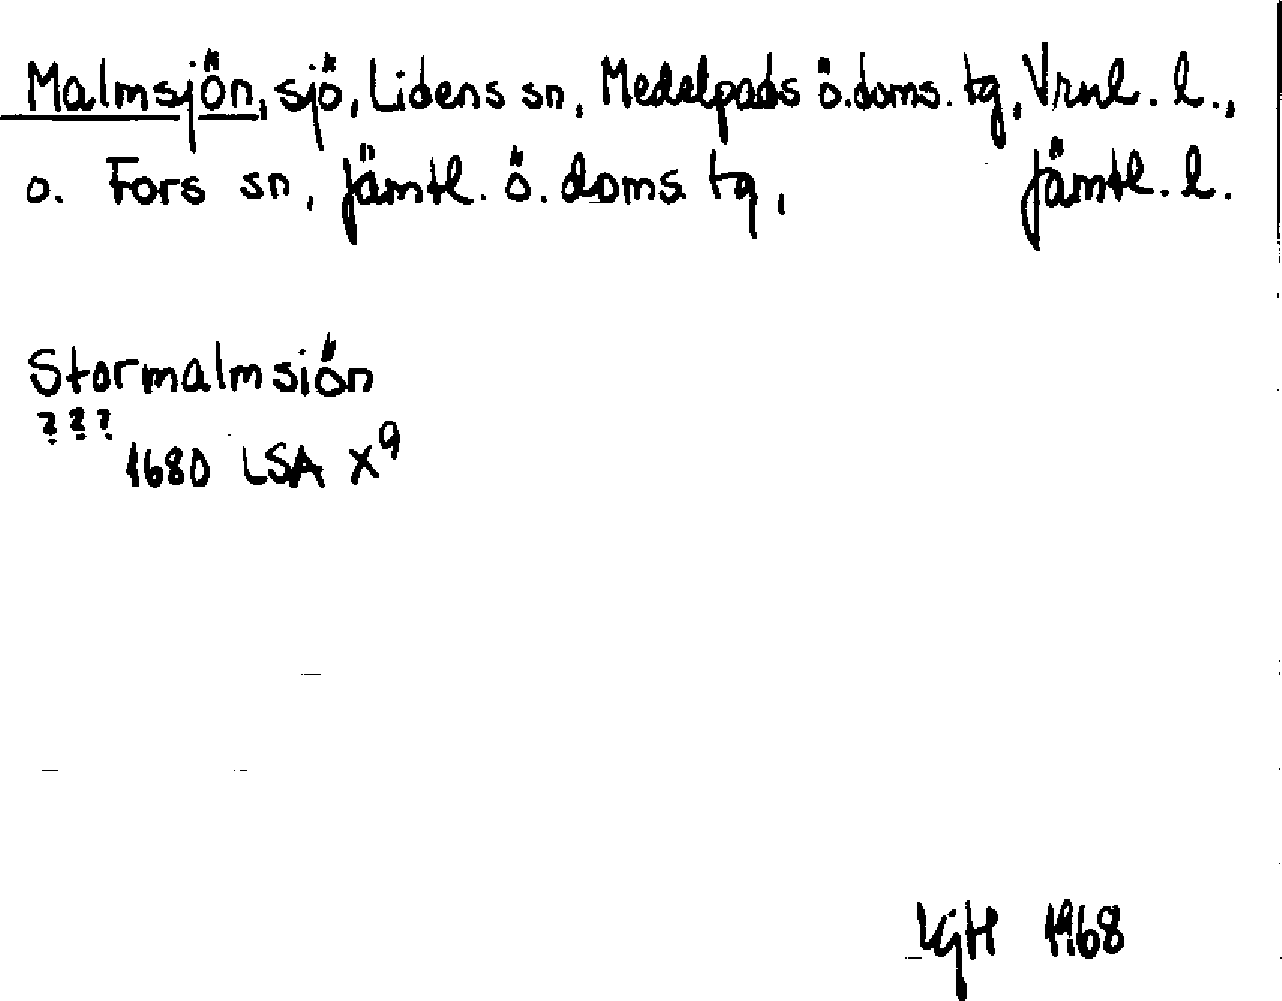 Malmsjön, sjö, Lidens sn, Medelpads ö. doms. tg, Vrnl. l.,
o. Fors sn, Jämtl. ö. doms. tg, Jämtl. l.
Stormalmsiön
???
1680 LSA X9
LGH 1968